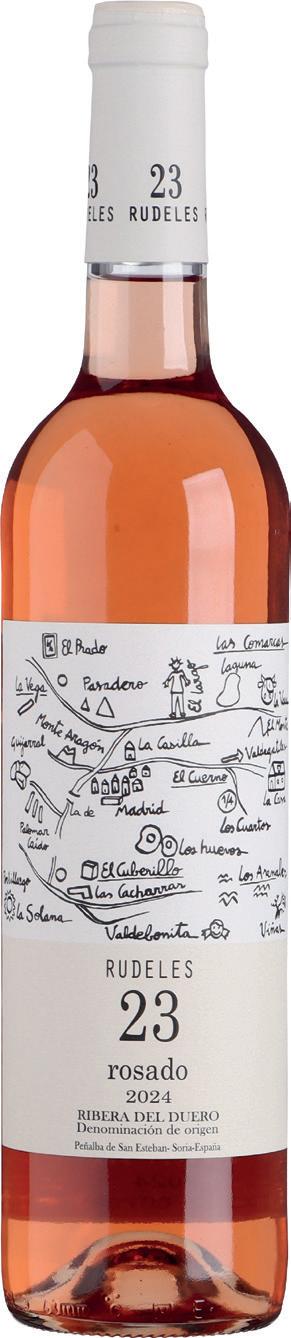 23
RUDELES
El Prado
Las Comarcas
laguna
La Vega
Pasadero
El Largo
Monte Aragón
La Casilla
Guijarral
El Cuerno
La de
Madrid
1/4
Los Cuartos
Palomar
Caído
Los huevos
El Cuberillo
Los Arenales
Las Cacharras
la Solana
Valdebonita
Viñas
RUDELES
23
rosado
2024
RIBERA DEL DUERO
Denominación de origen
Peñalba de San Esteban- Soria-España